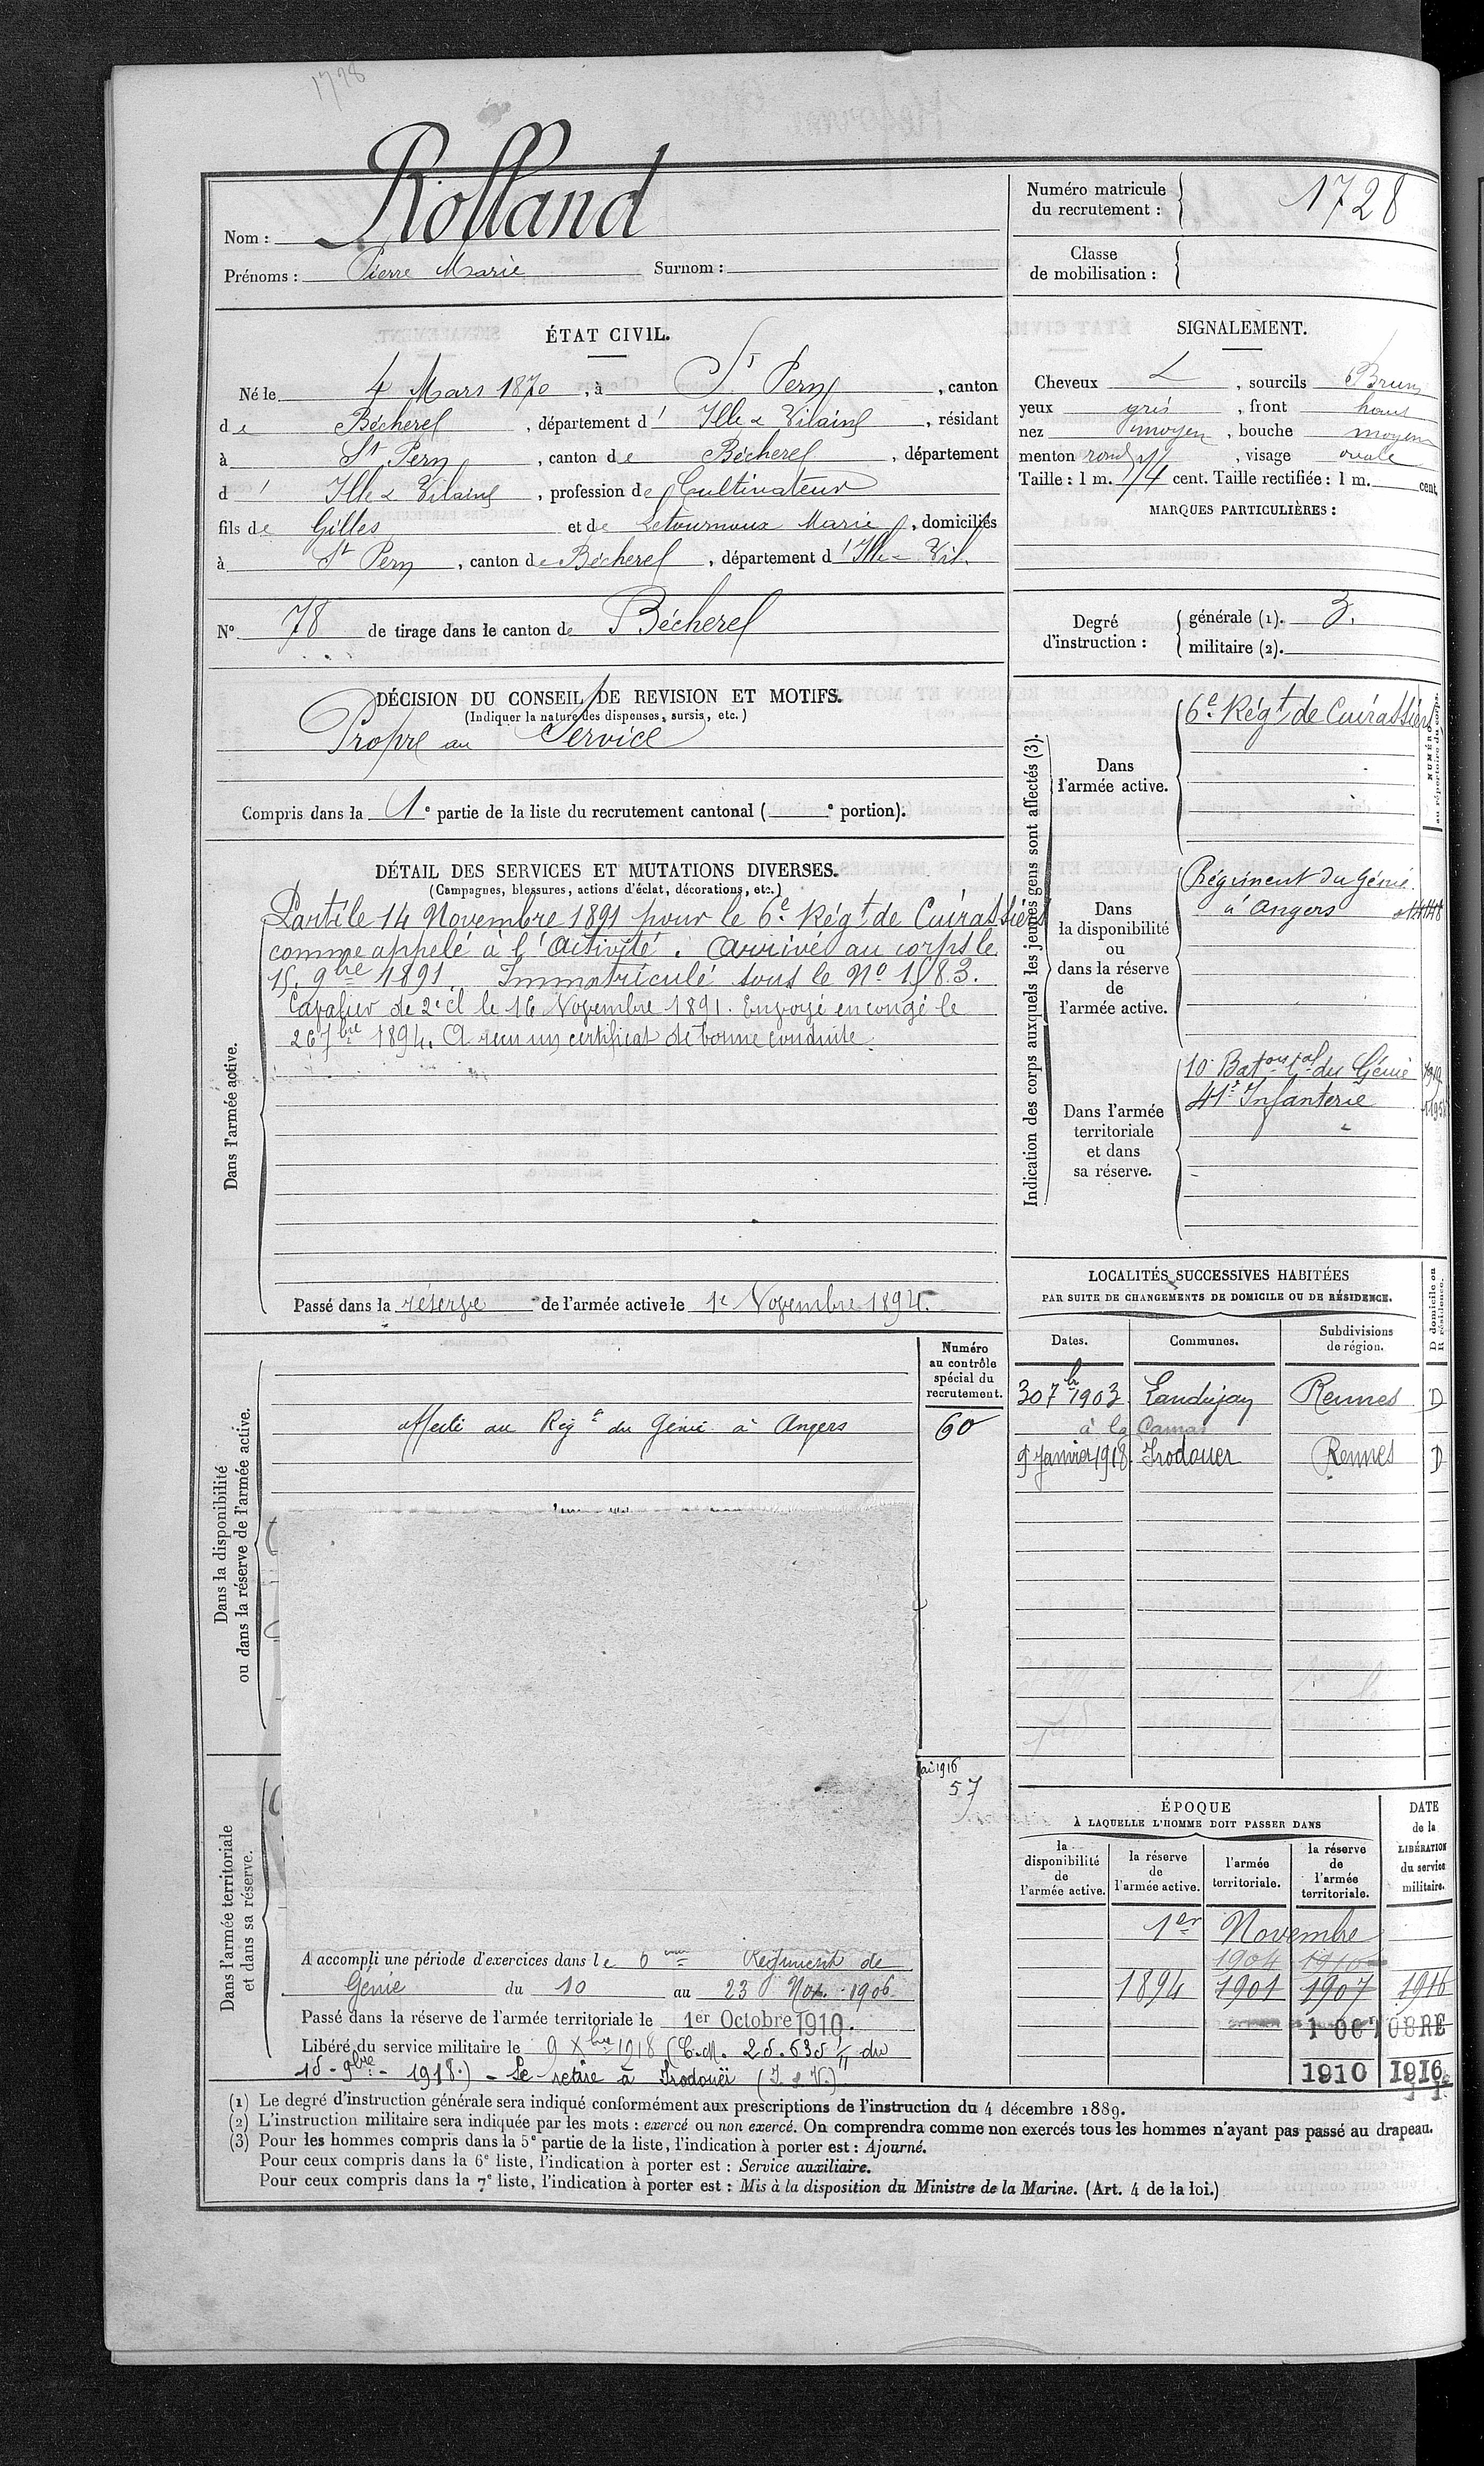 1728
Rolland
Nom :
Prénoms : Pierre Marie Surnom :
Numéro matricule
du recrutement : 1728
Classe
de mobilisation :
ÉTAT CIVIL.
Né le 4 Mars 1870, à St Pern, canton
de Bécherel, département d' Ille & Vilaine, résidant
à St Pern, canton de Bécherel, département
d' Ille & Vilaine, profession de Cultivateur
fils de Gilles et de Letournoux Marie, domiciliés
à St Pern, canton de Bécherel, département d' Ille & Vil.
No 78 de tirage dans le canton de Bécherel
SIGNALEMENT.
Cheveux , sourcils Bruns
yeux gris, front haut
nez moyen, bouche moyenne
menton rond, visage ovale
Taille : 1 m. 74 cent. Taille rectifiée : 1 m. cent.
MARQUES PARTICULIÈRES :
Degré
d'instruction :
générale (1). 3.
militaire (2).
DÉCISION DU CONSEIL DE REVISION ET MOTIFS.
(Indiquer la nature des dispenses, sursis, etc.)
Propre au Service
Compris dans la 1e partie de la liste du recrutement cantonal ( e portion).
DÉTAIL DES SERVICES ET MUTATIONS DIVERSES.
(Campagnes, blessures, actions d'éclat, décorations, etc.)
Dans l'armée active.
Parti le 14 Novembre 1891 pour le 6e Régt de Cuirassiers
comme appelé à l'activité. Arrivé au corps le
15 9bre 1891. Immatriculé sous le No 1583.
Cavalier de 2e cl le 16 Novembre 1891. Envoyé en congé le
26 7bre 1894. A reçu un certificat de bonne conduite.
Passé dans la réserve de l'armée active le 1er Novembre 1894.
Indication des corps auxquels les jeunes gens sont affectés (3).
NUMÉRO
au répertoire du corps.
Dans
l'armée active.
6e Régt de Cuirassiers
Dans
la disponibilité
ou
dans la réserve
de
l'armée active.
Régiment du Génie
à Angers
Dans l'armée
territoriale
et dans
sa réserve.
10e Baton tal du Génie
41e Infanterie
Dans la disponibilité
ou dans la réserve de l'armée active.
Numéro
au contrôle
spécial du
recrutement.
affecté au Régt du Génie à Angers
60
LOCALITÉS SUCCESSIVES HABITÉES
PAR SUITE DE CHANGEMENTS DE DOMICILE OU DE RÉSIDENCE.
D domicile ou
R résidence.
Dates. Communes. Subdivisions
de région.
30 7br 1903 Landujan Rennes D
à la
9 Janvier 1918 Irodouer Rennes D
Dans l'armée territoriale
et dans sa réserve.
1916
57
A accompli une période d'exercices dans le 6ème Régiment de
Génie du 10 au 23 Nov. 1906
Passé dans la réserve de l'armée territoriale le 1er Octobre 1910.
Libéré du service militaire le 9 Xbre 1918 (C.M. 25.635 du
15 - 9bre - 1918.) - Se retire à Irodouër (I & V.)
ÉPOQUE
À LAQUELLE L'HOMME DOIT PASSER DANS
la
disponibilité
de
l'armée active.
la réserve
de
l'armée active.
l'armée
territoriale.
la réserve
de
l'armée
territoriale.
DATE
de la
LIBÉRATION
du service
militaire.
1er Novembre
1904 1910
1894 1901 1907 1916
1 OCTOBRE
1910 1916
(1) Le degré d'instruction générale sera indiqué conformément aux prescriptions de l'instruction du 4 décembre 1889.
(2) L'instruction militaire sera indiquée par les mots : exercé ou non exercé. On comprendra comme non exercés tous les hommes n'ayant pas passé au drapeau.
(3) Pour les hommes compris dans la 5e partie de la liste, l'indication à porter est : Ajourné.
Pour ceux compris dans la 6e liste, l'indication à porter est : Service auxiliaire.
Pour ceux compris dans la 7e liste, l'indication à porter est : Mis à la disposition du Ministre de la Marine. (Art. 4 de la loi.)